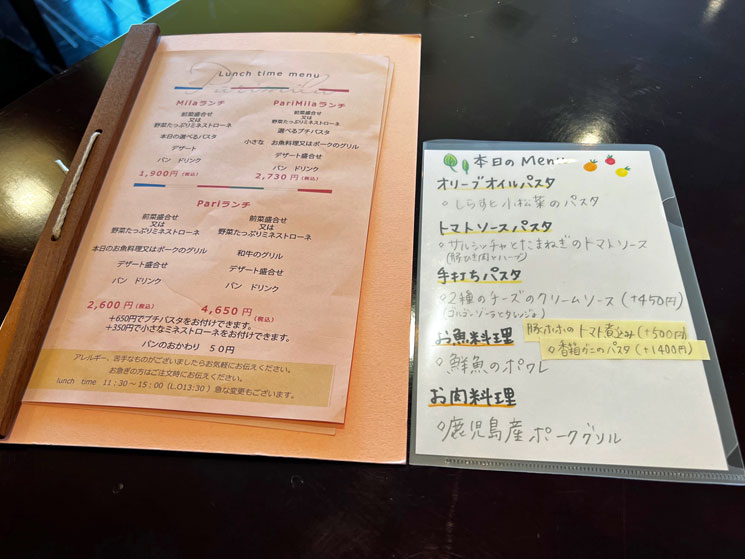 Lunch time menu
Milaランチ
前菜盛合せ
又は
野菜たっぷりミネストローネ
本日の選べるパスタ
デザート
パン ドリンク
1,900円(税込)
PariMilaランチ
前菜盛合せ
又は
野菜たっぷりミネストローネ
選べるプチパスタ
小さな お魚料理又はポークのグリル
デザート盛合せ
パン ドリンク
2,730円(税込)
Pariランチ
前菜盛合せ
又は
野菜たっぷりミネストローネ
本日のお魚料理又はポークのグリル
デザート盛合せ
パン ドリンク
2,600円(税込)
前菜盛合せ
又は
野菜たっぷりミネストローネ
和牛のグリル
デザート盛合せ
パン ドリンク
4,650円(税込)
+650円でプチパスタをお付けできます。
+350円で小さなミネストローネをお付けできます。
パンのおかわり 50円
アレルギー、苦手なものがございましたらお気軽にお伝えください。
お急ぎの方はご注文時にお伝えください。
lunch time 11:30～15:00(L.O13:30) 急な変更もございます。
本日のMenu
オリーブオイルパスタ
◇しらすと小松菜のパスタ
トマトソースパスタ
◇サルシッチャとたまねぎのトマトソース
(豚ひき肉とハーブ)
手打ちパスタ
◇2種のチーズのクリームソース(+450円)
(ゴルゴンゾーラとタレッジョ)
豚ホホのトマト煮込み(+500円)
◇香箱がにのパスタ(+1400円)
お魚料理
◇鮮魚のポワレ
お肉料理
◇鹿児島産ポークグリル